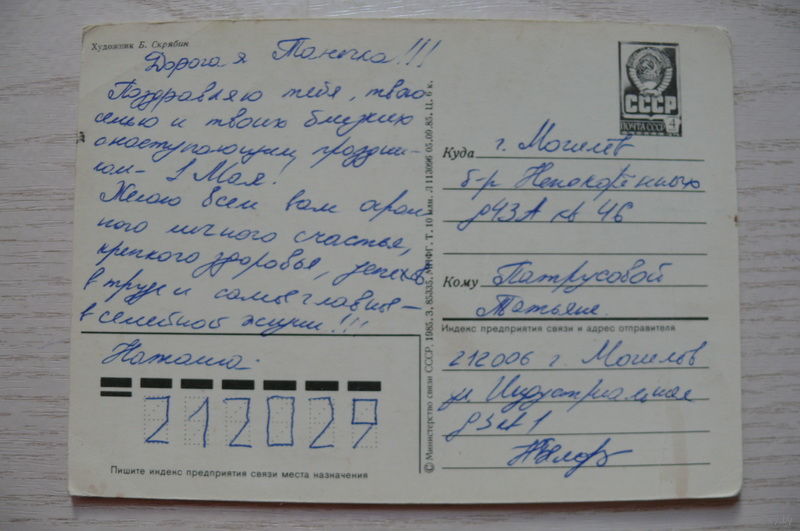 Художник Б. Скрябин
Дорогая Танечка!!!
Поздравляю тебя, твою
семью и твоих близких
с наступающим праздни-
ком - 1 Мая!
Желаю всем вам огром
ного личного счастья,
крепкого здоровья, успехов
в труде и самое главное -
в семейной жизни!!!
Наташа.
212029
Пишите индекс предприятия связи места назначения
© Министерство связи СССР, 1985. З. 85335. МПФГ. Т. 10 млн. Л 113096 05.09.85. Ц. 6 к.
СССР
ПОЧТА СССР 4
Куда г. Могилёв
б-р Непокорённых
д 43А кв 46
Кому Патрусовой
Татьяне.
Индекс предприятия связи и адрес отправителя
212006 г. Могилёв
ул Индустриальная